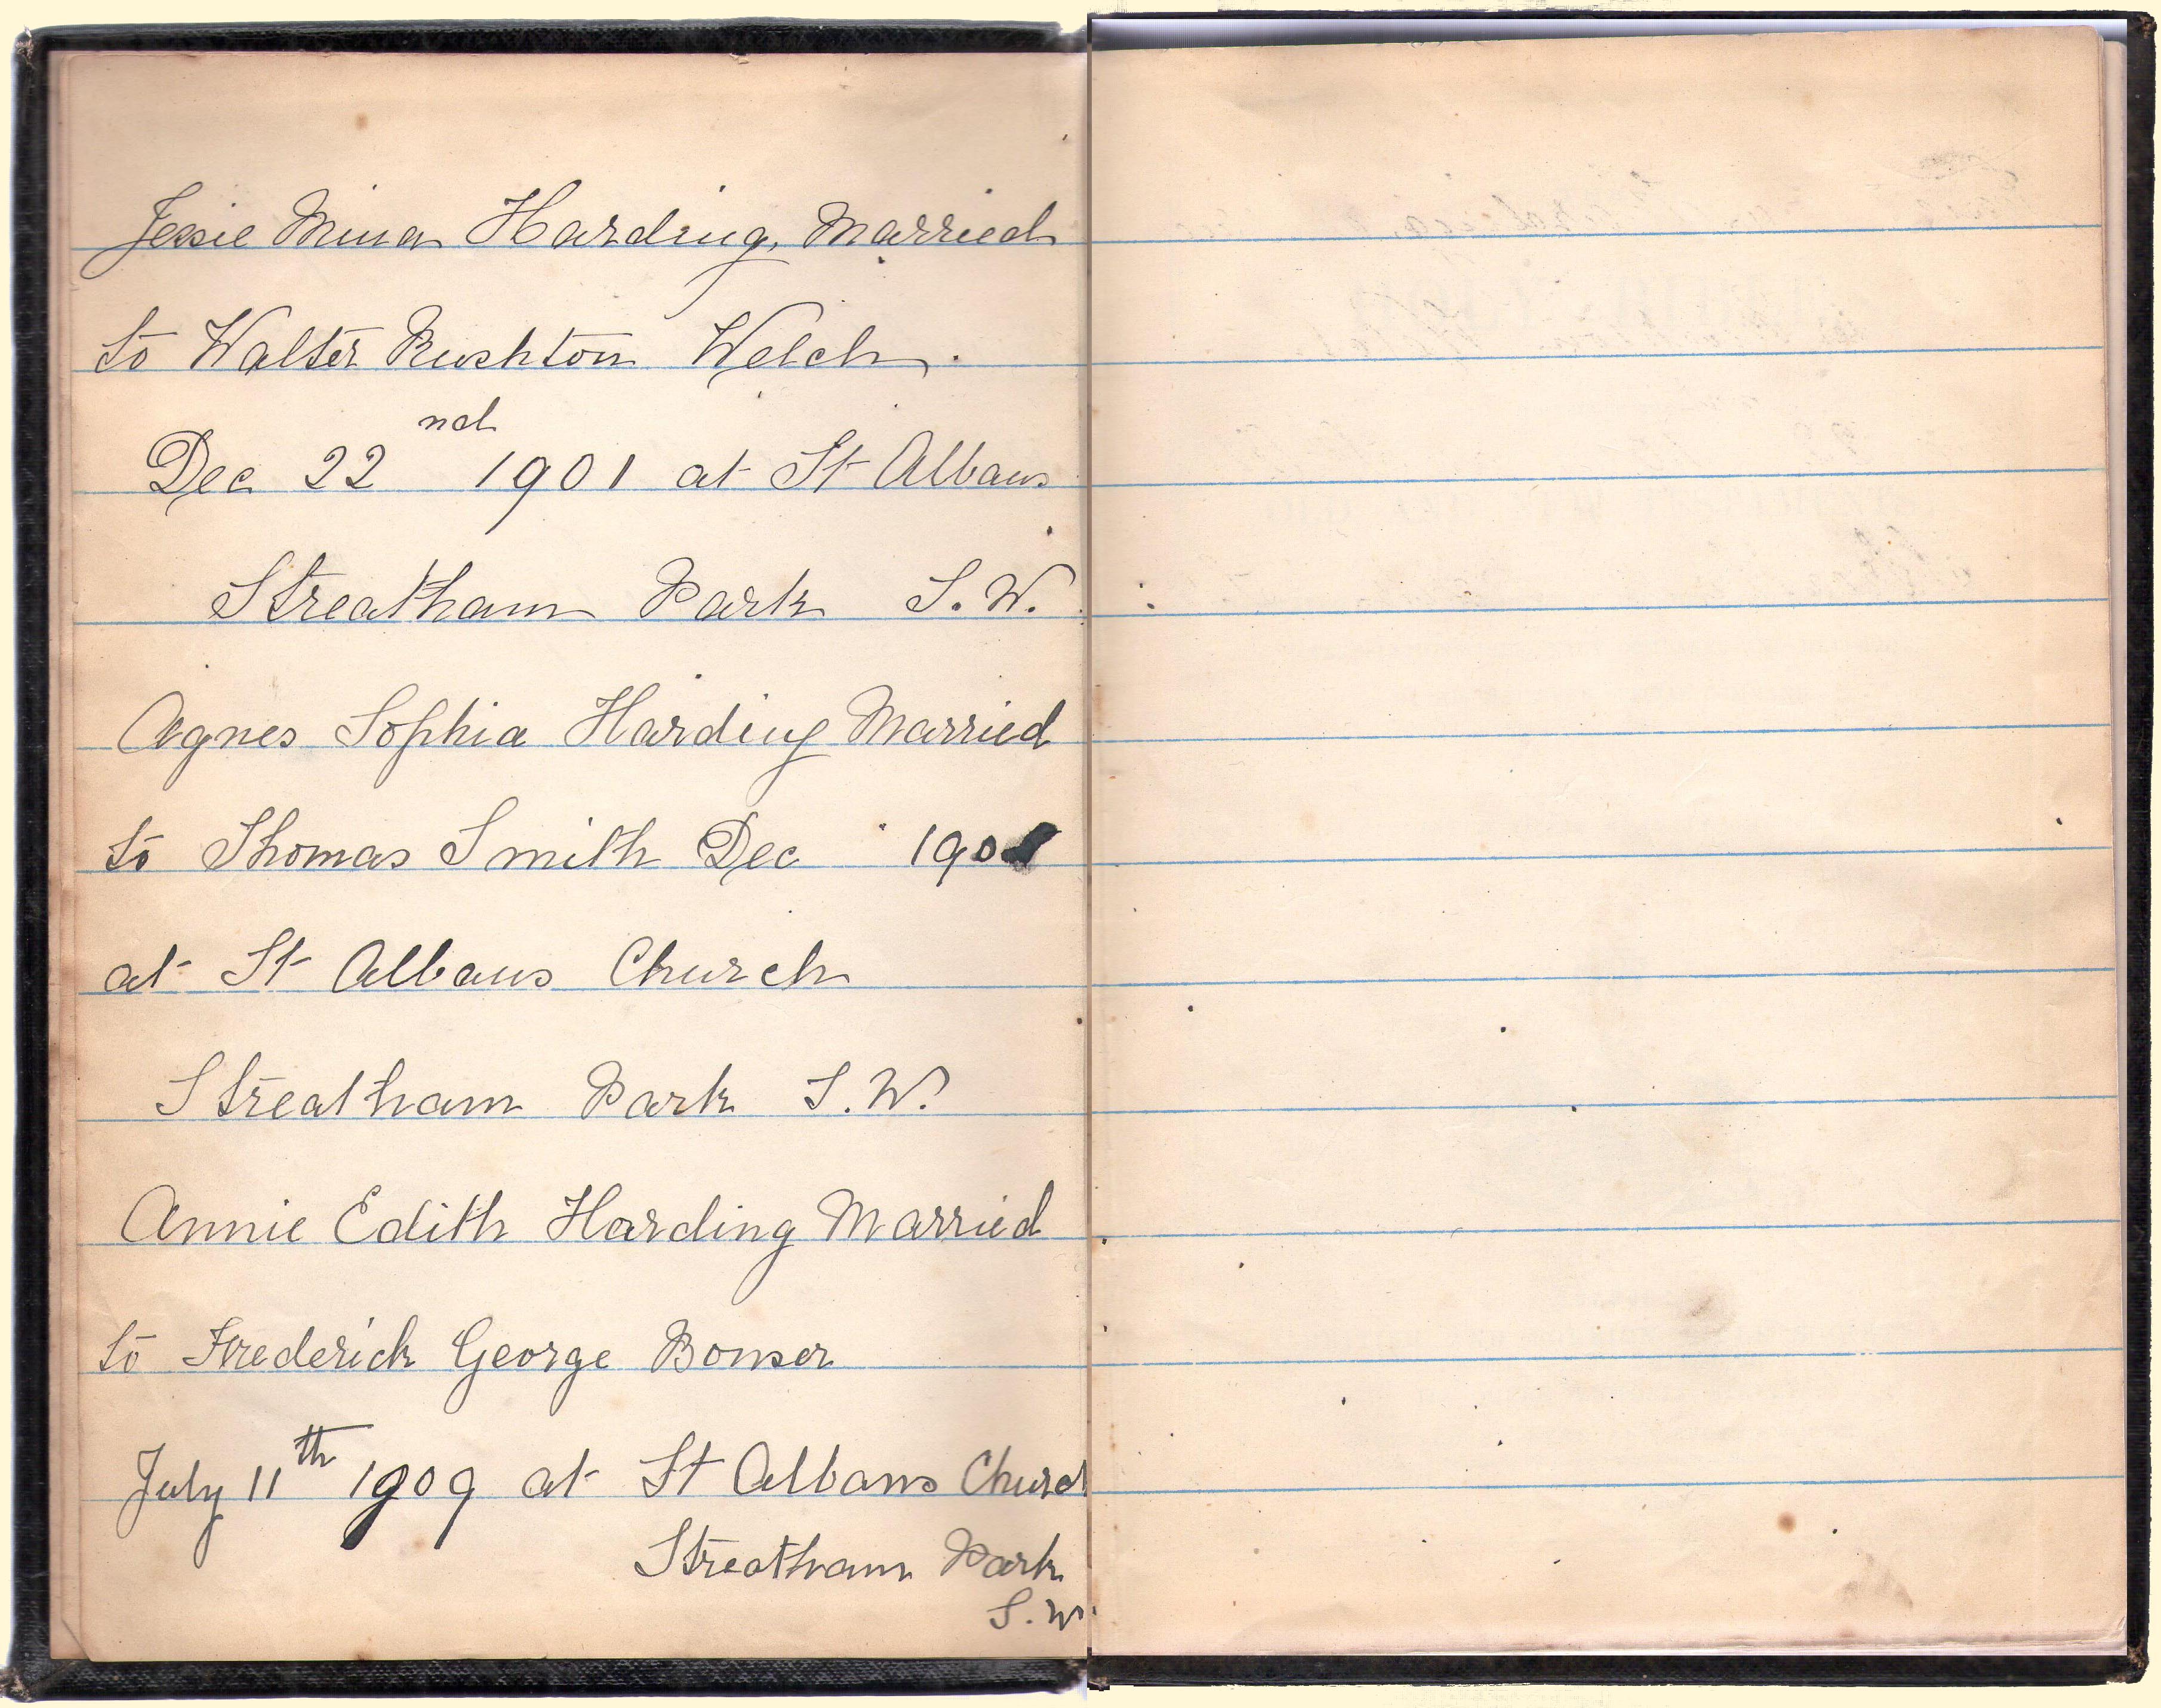 Jessie Mina Harding, Married
to Walter Rushton Welch.
Dec 22nd 1901 at St Albans
Streatham Park S.W.
Agnes Sophia Harding Married
to Thomas Smith Dec 1901
at St Albans Church
Streatham Park S.W.
Annie Edith Harding Married
to Frederick George Bonser
July 11th 1909 at St Albans Church
Streatham Park
S.W.